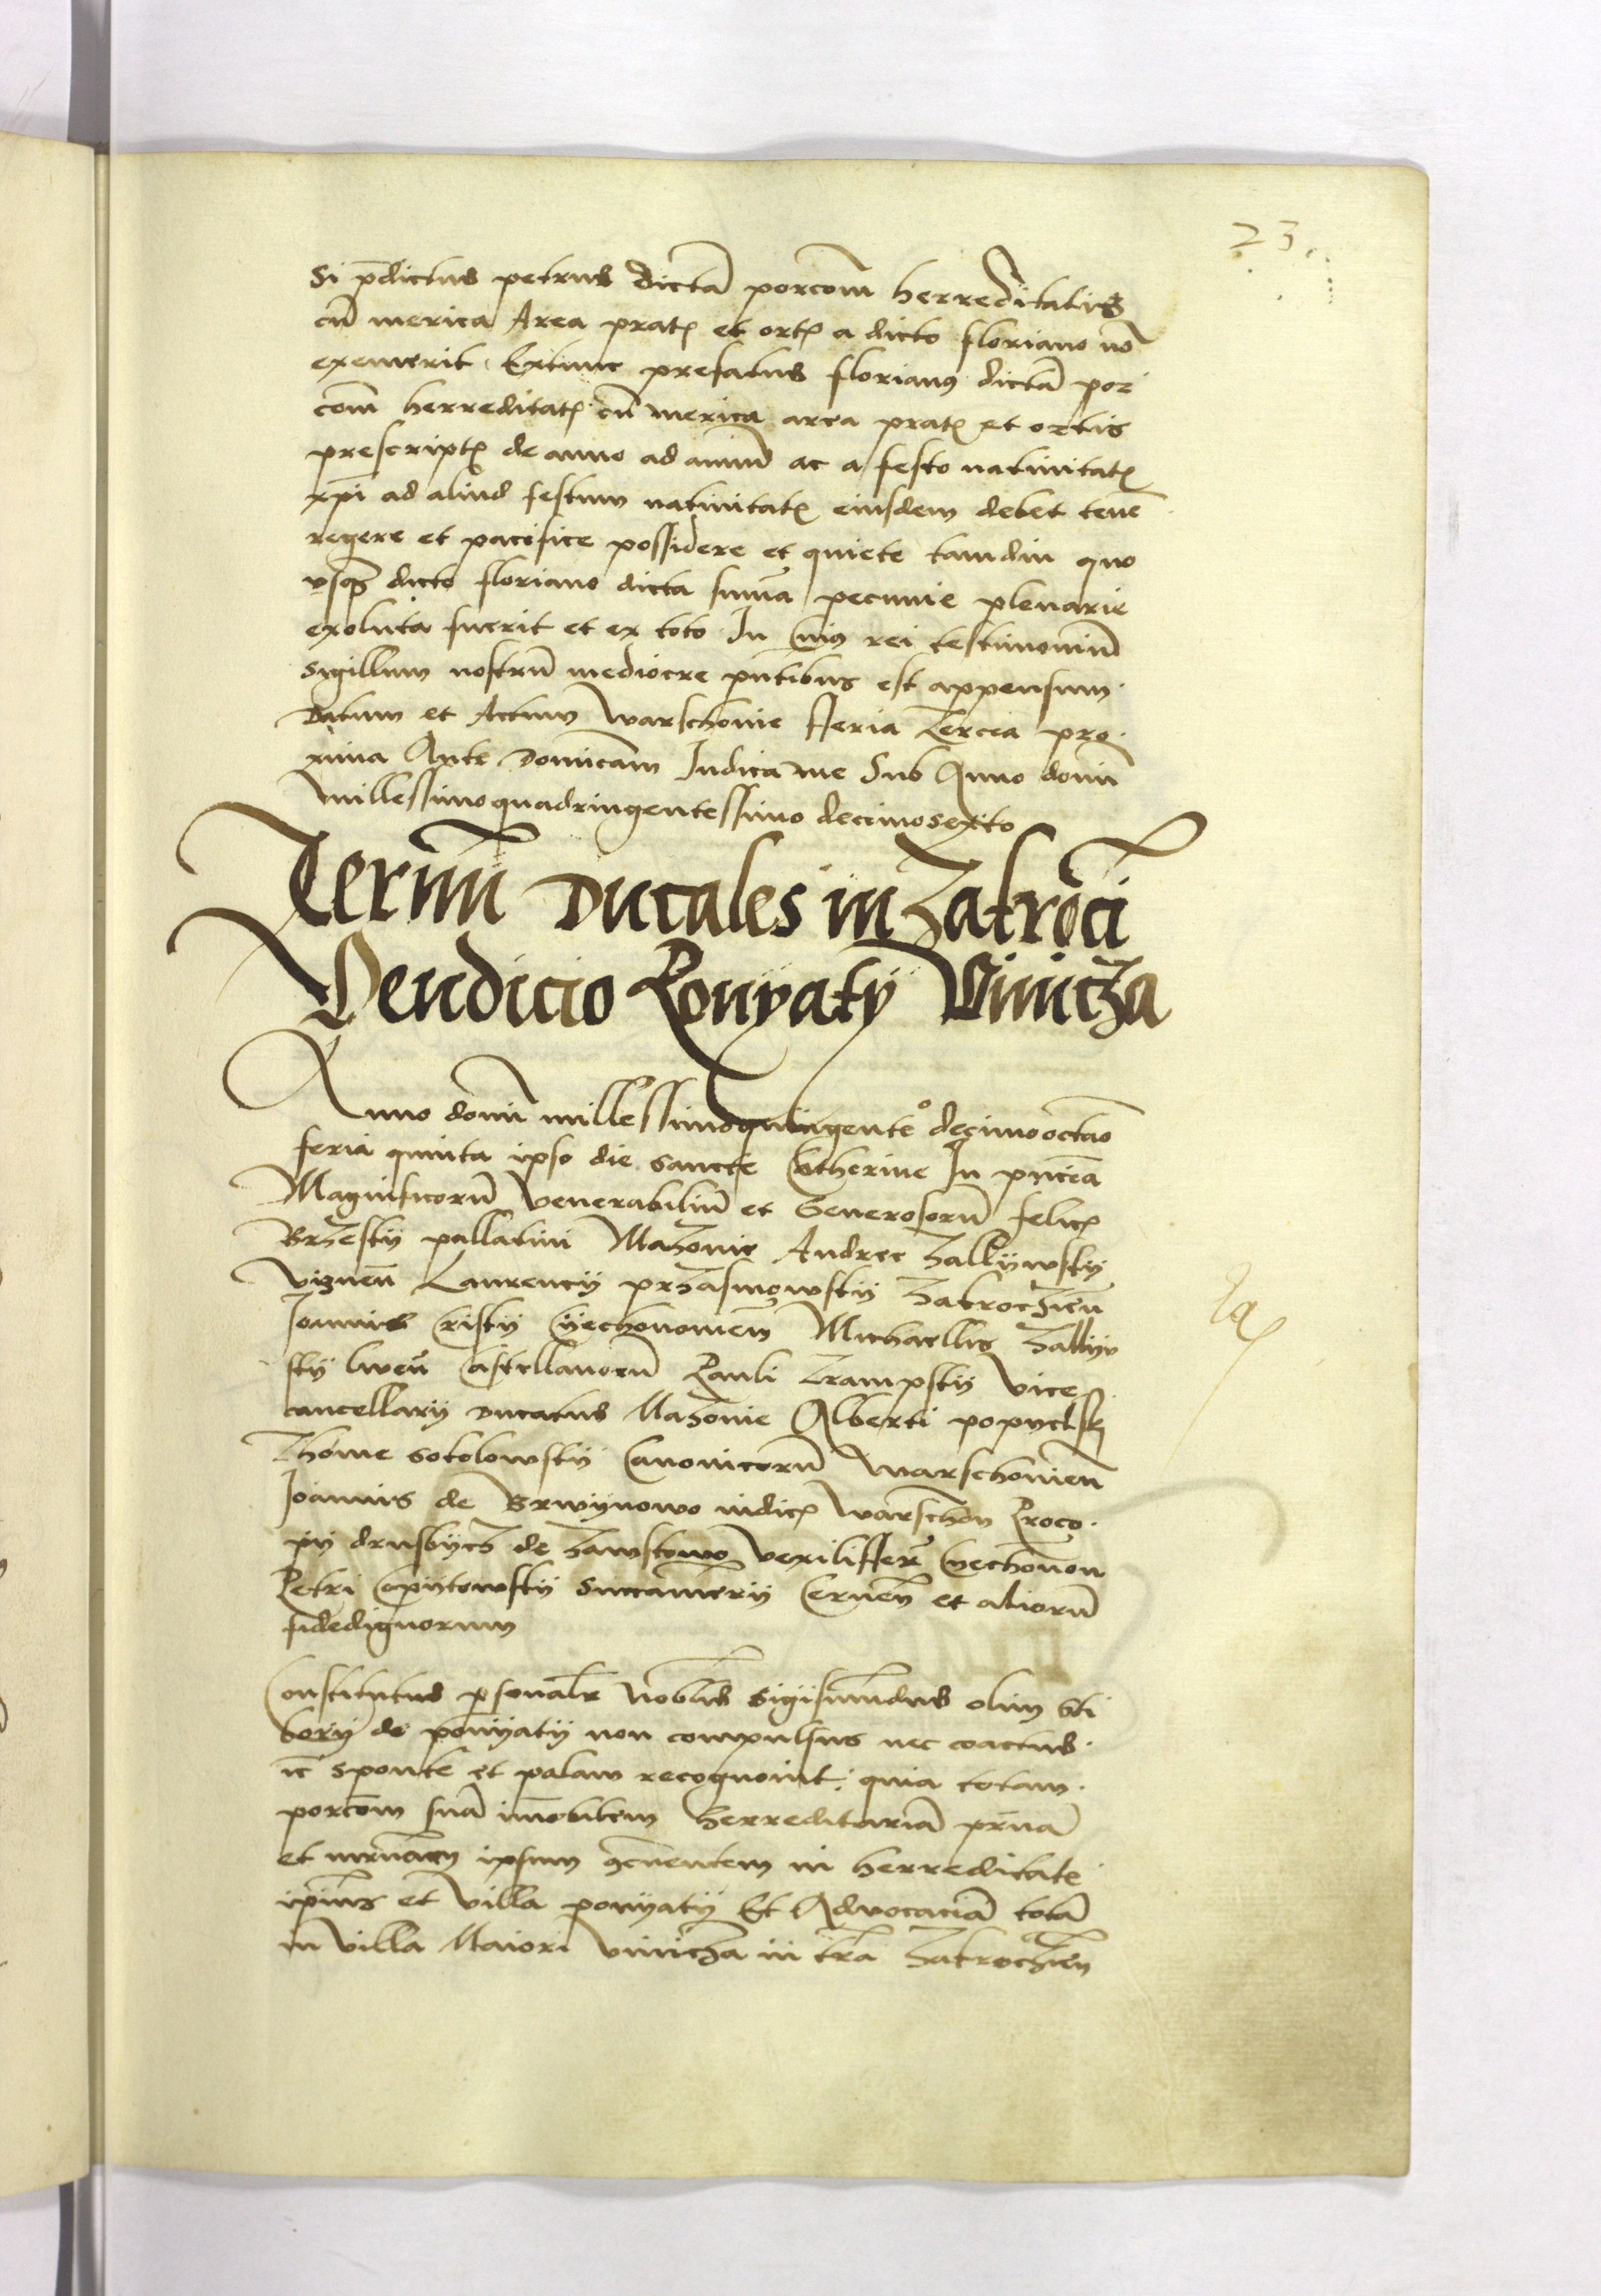 23
Si p̄dictus petrus dictā porcōm herreditatis
cū merica Area pratꝭ et ortꝭ a dicto floriano nō
exemerit Extunc prefatus florianꝰ dictā por
com̄ herreditatꝭ cū merica area pratꝭ et ortis
prescriptꝭ de anno ad annū ac a festo natiuitatꝭ
xp̄i ad aliud festum natiuitatꝭ eiusdem debet tenē
regere et pacifice possidere et quiete tamdiu quo
vsqꝫ dicto floriano dicta sum̄a pecunie plenarie
exoluta fuerit et ex toto In Cuiꝰ rei testimoniū
Sigillum nostrū mediocre pn̄tibus est appensum
Datum et Actum Warschouie fferia Tercia pro
xima Ante Dominicam Iudica me Sub Anno domī
millessimoquadringentessimo decimosexto
Termī Ducales in Zatrocī
Vendicio Ponyaty Vinicza
Anno domī millessimoquingenteº decimooctāo
feria quinta ipso die sancte Catherine In pn̄cia
Magnificorū Venerabiliū et Generosorū felicꝭ
Brzesky pallatini Mazouie Andree Zallywsky
Viznen̄ Laurencij przasmowsky Zatroczien̄
Joannis Crisky Cyechonomien̄ Michaellis Zallyw
sky liuen̄ Castellanorū Pauli Trampsky Vice
cancellarij Ducatus Mazouie Alberti popyelsky
Thome sokolowsky Canonicorū Warschouien̄
Joannis de Brwynowo iudicꝭ Warschon̄ Proco
pij drusbycz de vexilifferi Cyechonon̄
Petri Copytowsky Succamerij Cernen̄ et aliorū
fidedignorum
Constitutus personalr̄ Nobilis Sigismundus olim Sti
bory de ponyaty non compulsus nec coactus
sꝫ sponte et palam recognouit quia totam
porcōm suā im̄obilem herreditariā
et ipsum ꝯcernentem in herreditate
ipius et Villa ponyaty Et Aduocaciā totā
in Villa Maiori Vinicza in tr̄a Zatroczien̄